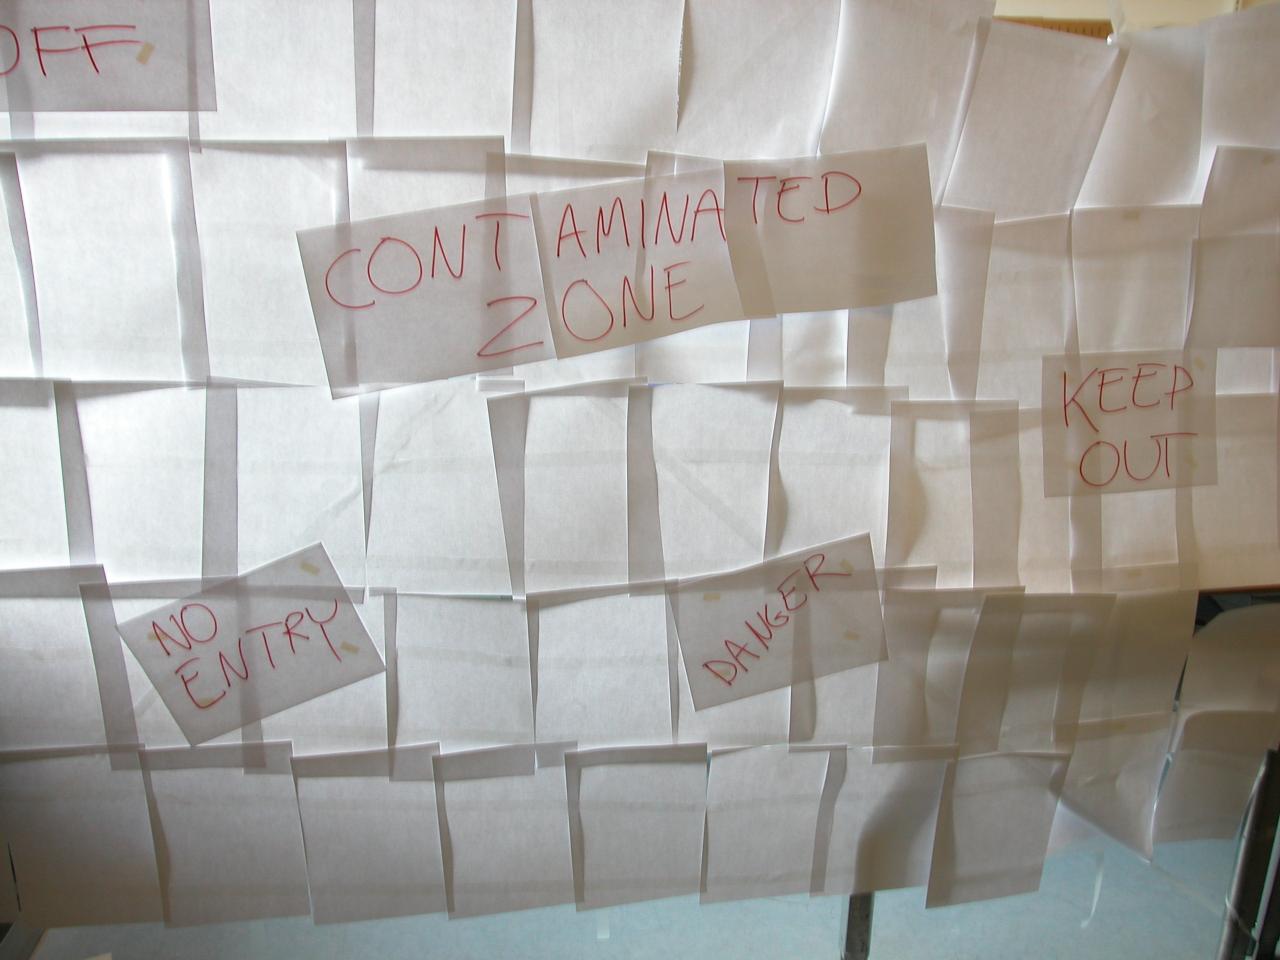 OFF
CONTAMINATED
ZONE
KEEP
OUT
NO
ENTRY
DANGER